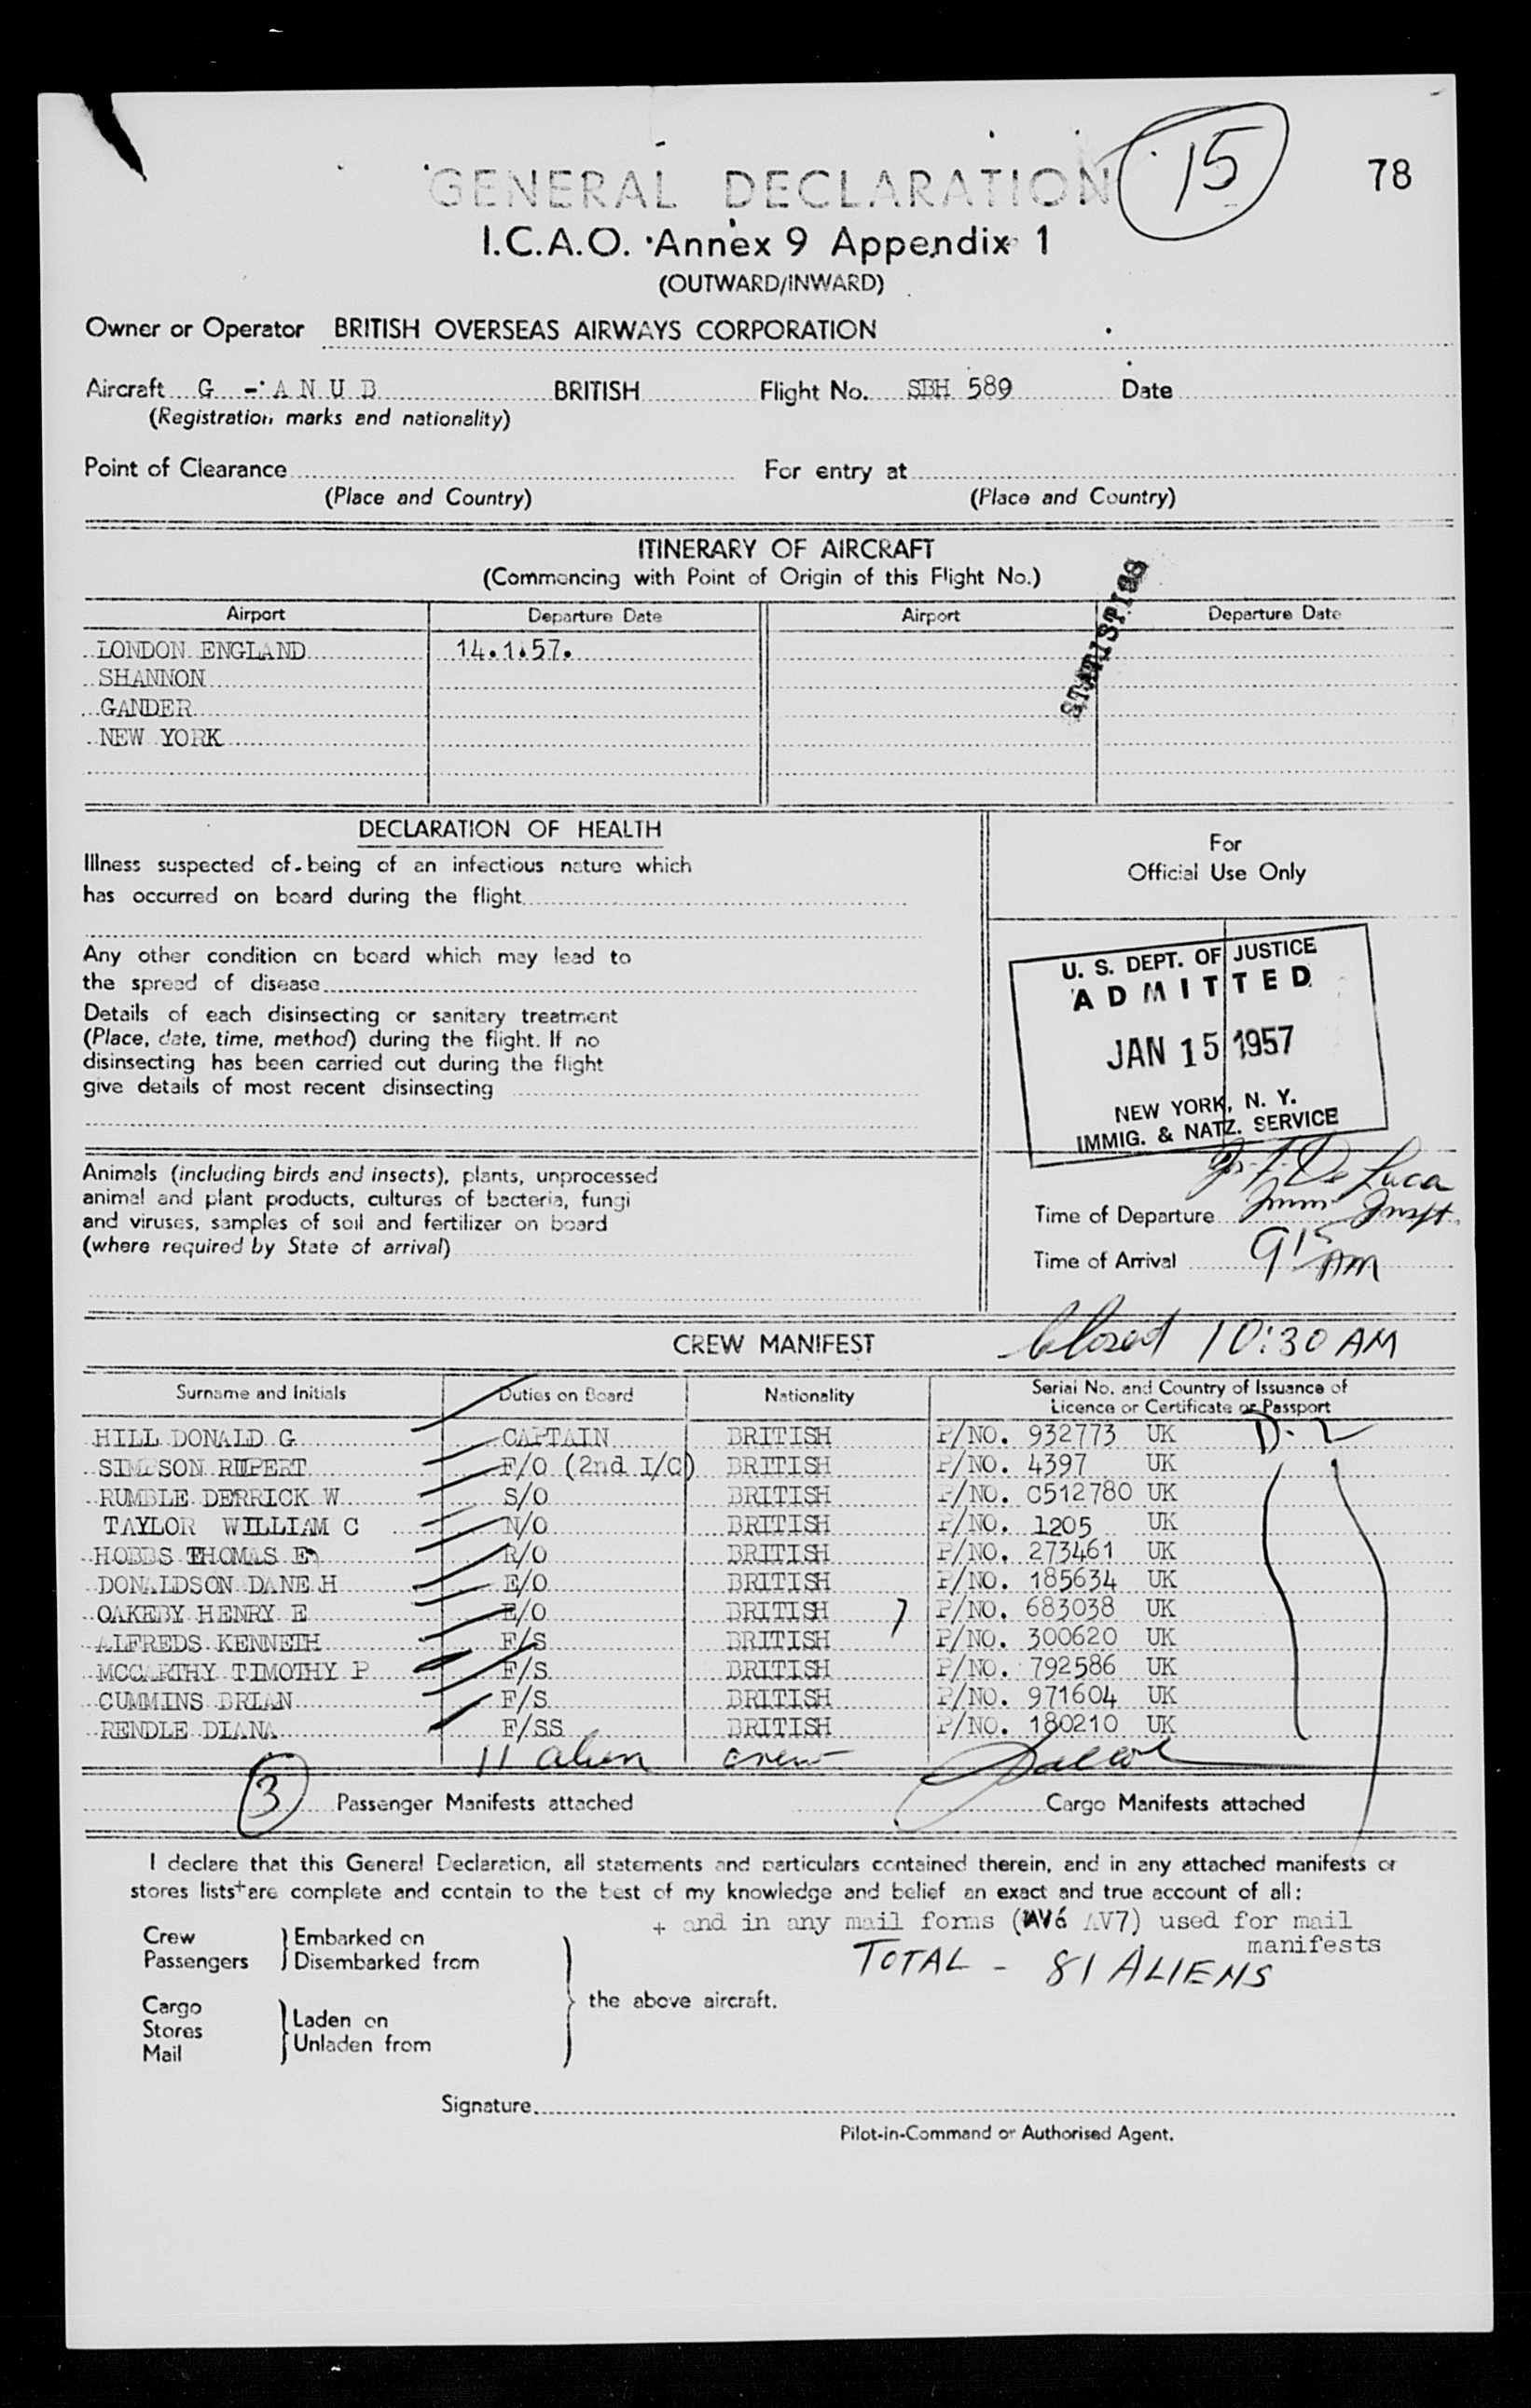 15
78
GENERAL DECLARATION
I.C.A.O. Annex 9 Appendix 1
(OUTWARD/INWARD)
Owner or Operator BRITISH OVERSEAS AIRWAYS CORPORATION
Aircraft G - A N U B BRITISH Flight No. SBH 589 Date
(Registration marks and nationality)
Point of Clearance For entry at
(Place and Country) (Place and Country)
ITINERARY OF AIRCRAFT
(Commencing with Point of Origin of this Flight No.)
STATISTICS
Airport Departure Date Airport Departure Date
LONDON ENGLAND 14.1.57.
SHANNON
GANDER
NEW YORK
DECLARATION OF HEALTH
Illness suspected of being of an infectious nature which
has occurred on board during the flight
Any other condition on board which may lead to
the spread of disease
Details of each disinsecting or sanitary treatment
(Place, date, time, method) during the flight. If no
disinsecting has been carried out during the flight
give details of most recent disinsecting
Animals (including birds and insects), plants, unprocessed
animal and plant products, cultures of bacteria, fungi
and viruses, samples of soil and fertilizer on board
(where required by State of arrival)
For
Official Use Only
U. S. DEPT. OF JUSTICE
ADMITTED
JAN 15 1957
NEW YORK, N. Y.
IMMIG. & NATZ. SERVICE
De Luca
Time of Departure Imm Inspt.
Time of Arrival 9 15 AM
CREW MANIFEST
Closed 10:30 AM
Surname and Initials Duties on Board Nationality Serial No. and Country of Issuance of
Licence or Certificate or Passport
HILL DONALD G CAPTAIN BRITISH P/NO. 932773 UK D-2
SIMPSON RUPERT F/O (2nd I/C) BRITISH P/NO. 4397 UK
RUMBLE DERRICK W S/O BRITISH P/NO. C512780 UK
TAYLOR WILLIAM C N/O BRITISH P/NO. 1205 UK
HOBBS THOMAS E R/O BRITISH P/NO. 273461 UK
DONALDSON DANE H E/O BRITISH P/NO. 185634 UK
OAKEBY HENRY E E/O BRITISH 7 P/NO. 683038 UK
ALFREDS KENNETH F/S BRITISH P/NO. 300620 UK
MCCARTHY TIMOTHY P F/S BRITISH P/NO. 792586 UK
CUMMINS BRIAN F/S BRITISH P/NO. 971604 UK
RENDLE DIANA F/SS BRITISH P/NO. 180210 UK
11 alien crew
3 Passenger Manifests attached Cargo Manifests attached
I declare that this General Declaration, all statements and particulars contained therein, and in any attached manifests or
stores lists+ are complete and contain to the best of my knowledge and belief an exact and true account of all:
+ and in any mail forms (AV6 AV7) used for mail
manifests
TOTAL - 81 ALIENS
Crew
Passengers
Embarked on
Disembarked from
Cargo
Stores
Mail
Laden on
Unladen from
the above aircraft.
Signature
Pilot-in-Command or Authorised Agent.